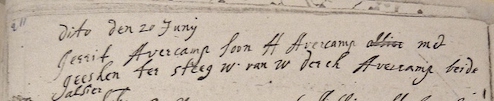 dito den 20 Junij
Gerrit Avercamp soon H Avercamp alhier met
geeshen ter steeg w. van W derck Avercamp beide
alhier